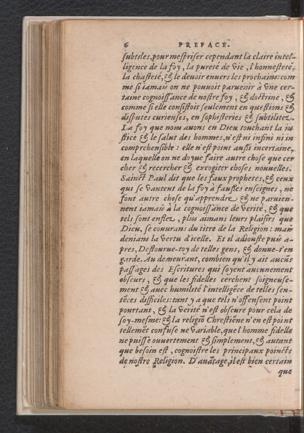 6 PREFACE.
subtiles, pour mespriser cependant la claire intel-
ligence de la foy, la pureté de vie, l'honnesteté,
la chasteté, & le deuoir enuers les prochains: com
me si iamais on ne pouuoit paruenir à vne cer-
taine cognoissance de nostre foy, & doctrine, &
comme si elle consistoit seulement en questions &
disputes curieuses, en sophisteries & subtilitez.
La foy que nous auons en Dieu touchant la iu
stice & le salut des hommes, n'est ni infini ni in
comprehensible: elle n'est point aussi incertaine,
en laquelle on ne doyue faire autre chose que cer
cher & recercher & excogiter choses nouuelles.
Sainct Paul dit que les faux prophetes, & ceux
qui se vantent de la foy à fausses enseignes, ne
font autre chose qu'apprendre, & ne paruien-
nent iamais à la cognoissance de verité, & que
tels sont enflez, plus aimans leurs plaisirs que
Dieu, se couurans du titre de la Religion: mais
denians la vertu d'icelle. Et il adiouste puis a-
pres, Destourne-toy de telles gens, & donne-t'en
garde. Au demeurant, combien qu'il y ait aucũs
passages des Escritures qui soyent aucunement
obscurs, & que les fidelles cerchent songneuse-
ment & auec humilité l'intelligẽce de telles sen-
tẽces difficiles: tant y a que tels n'offensent point
pourtant, & la verité n'est obscure pour cela de
soy-mesme: & la religiõ Chrestiẽne n'en est point
tellemẽt confuse ne variable, que l'homme fidelle
ne puisse ouuertement & simplement, & autant
que besoin est, cognoistre les principaux poincts
de nostre Religion. D'auãtage, il est bien certain
que